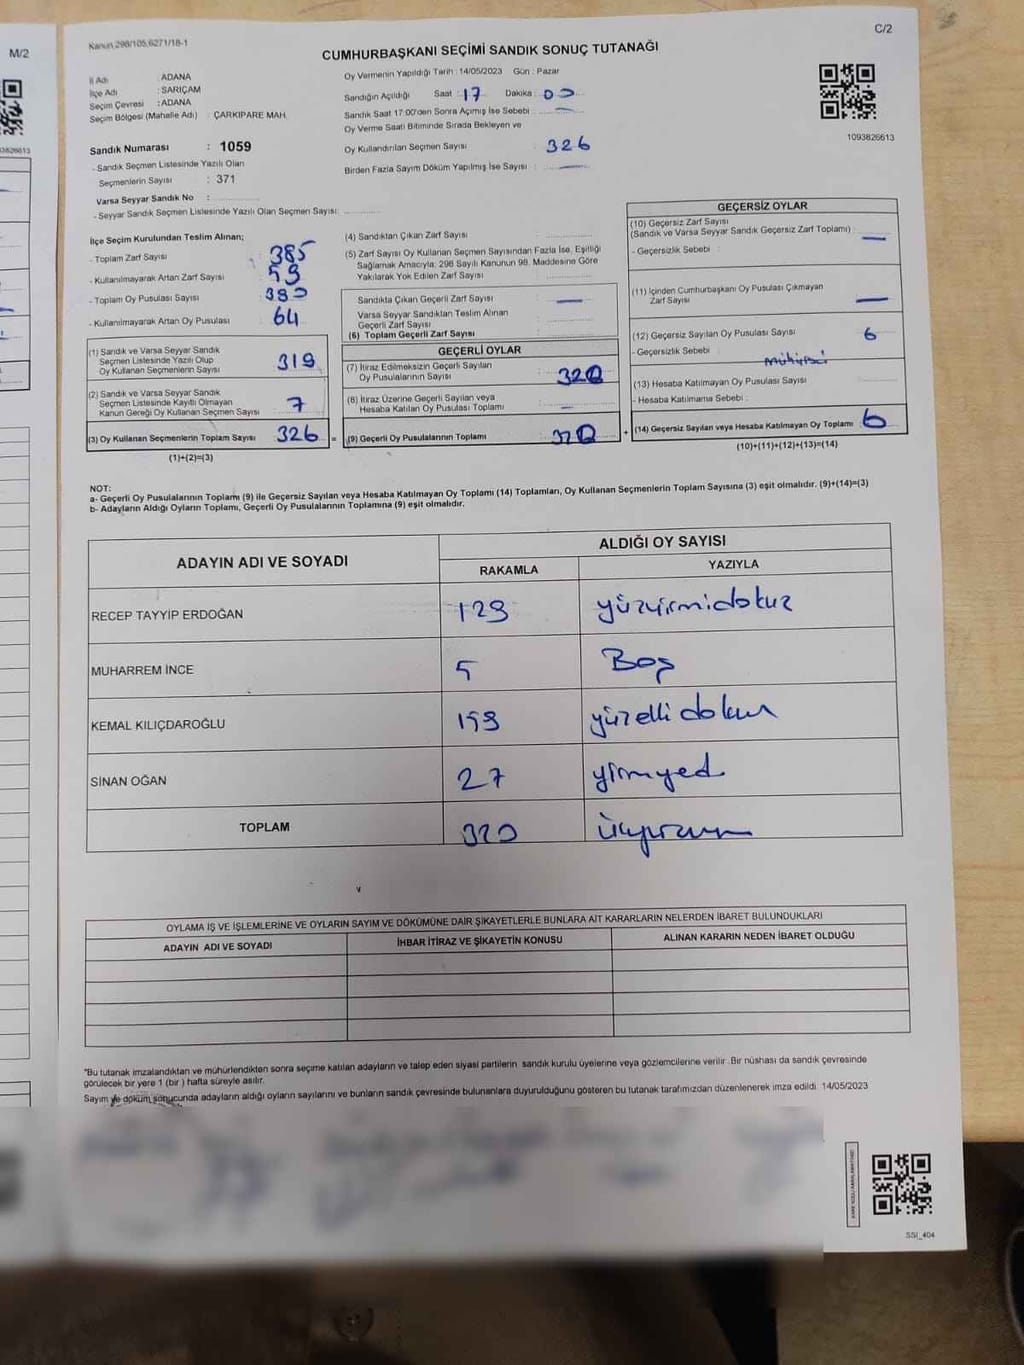 M/2
C/2
Kanun 298/105,6271/18-1
CUMHURBAŞKANI SEÇİMİ SANDIK SONUÇ TUTANAĞI
İl Adı : ADANA
İlçe Adı : SARIÇAM
Seçim Çevresi : ADANA
Seçim Bölgesi (Mahalle Adı) : ÇARKIPARE MAH.
Sandık Numarası : 1059
- Sandık Seçmen Listesinde Yazılı Olan
Seçmenlerin Sayısı : 371
Varsa Seyyar Sandık No :
- Seyyar Sandık Seçmen Listesinde Yazılı Olan Seçmen Sayısı:
Oy Vermenin Yapıldığı Tarih : 14/05/2023 Gün : Pazar
Sandığın Açıldığı Saat : 17 Dakika : 00
Sandık Saat 17:00'den Sonra Açımış İse Sebebi : —
Oy Verme Saati Bitiminde Sırada Bekleyen ve
Oy Kullandırılan Seçmen Sayısı : 326
Birden Fazla Sayım Döküm Yapılmış İse Sayısı : —
1093826613
İlçe Seçim Kurulundan Teslim Alınan;
- Toplam Zarf Sayısı : 385
- Kullanılmayarak Artan Zarf Sayısı : 59
- Toplam Oy Pusulası Sayısı : 390
- Kullanılmayarak Artan Oy Pusulası : 64
(1) Sandık ve Varsa Seyyar Sandık
Seçmen Listesinde Yazılı Olup
Oy Kullanan Seçmenlerin Sayısı : 319
(2) Sandık ve Varsa Seyyar Sandık
Seçmen Listesinde Kayıtlı Olmayan
Kanun Gereği Oy Kullanan Seçmen Sayısı : 7
(3) Oy Kullanan Seçmenlerin Toplam Sayısı : 326
(1)+(2)=(3)
(4) Sandıktan Çıkan Zarf Sayısı :
(5) Zarf Sayısı Oy Kullanan Seçmen Sayısından Fazla İse, Eşitliği
Sağlamak Amacıyla; 298 Sayılı Kanunun 98. Maddesine Göre
Yakılarak Yok Edilen Zarf Sayısı :
Sandıkta Çıkan Geçerli Zarf Sayısı : —
Varsa Seyyar Sandıktan Teslim Alınan
Geçerli Zarf Sayısı :
(6) Toplam Geçerli Zarf Sayısı :
GEÇERLİ OYLAR
(7) İtiraz Edilmeksizin Geçerli Sayılan
Oy Pusulalarının Sayısı : 320
(8) İtiraz Üzerine Geçerli Sayılan veya
Hesaba Katılan Oy Pusulası Toplamı : —
= (9) Geçerli Oy Pusulalarının Toplamı : 320
GEÇERSİZ OYLAR
(10) Geçersiz Zarf Sayısı
(Sandık ve Varsa Seyyar Sandık Geçersiz Zarf Toplamı) : —
- Geçersizlik Sebebi :
(11) İçinden Cumhurbaşkanı Oy Pusulası Çıkmayan
Zarf Sayısı : —
(12) Geçersiz Sayılan Oy Pusulası Sayısı : 6
- Geçersizlik Sebebi :
(13) Hesaba Katılmayan Oy Pusulası Sayısı :
- Hesaba Katılmama Sebebi :
+ (14) Geçersiz Sayılan veya Hesaba Katılmayan Oy Toplamı : 6
(10)+(11)+(12)+(13)=(14)
NOT:
a- Geçerli Oy Pusulalarının Toplamı (9) ile Geçersiz Sayılan veya Hesaba Katılmayan Oy Toplamı (14) Toplamları, Oy Kullanan Seçmenlerin Toplam Sayısına (3) eşit olmalıdır. (9)+(14)=(3)
b- Adayların Aldığı Oyların Toplamı, Geçerli Oy Pusulalarının Toplamına (9) eşit olmalıdır.
ADAYIN ADI VE SOYADI
ALDIĞI OY SAYISI
RAKAMLA YAZIYLA
RECEP TAYYİP ERDOĞAN 129 yüzyirmidokuz
MUHARREM İNCE 5 Beş
KEMAL KILIÇDAROĞLU 159 yüzellidokuz
SİNAN OĞAN 27 yirmyed
TOPLAM 320
OYLAMA İŞ VE İŞLEMLERİNE VE OYLARIN SAYIM VE DÖKÜMÜNE DAİR ŞİKAYETLERLE BUNLARA AİT KARARLARIN NELERDEN İBARET BULUNDUKLARI
ADAYIN ADI VE SOYADI İHBAR İTİRAZ VE ŞİKAYETİN KONUSU ALINAN KARARIN NEDEN İBARET OLDUĞU
*Bu tutanak imzalandıktan ve mühürlendikten sonra seçime katılan adayların ve talep eden siyasi partilerin sandık kurulu üyelerine veya gözlemcilerine verilir .Bir nüshası da sandık çevresinde
görülecek bir yere 1 (bir ) hafta süreyle asılır.
Sayım ve döküm sonucunda adayların aldığı oyların sayılarını ve bunların sandık çevresinde bulunanlara duyurulduğunu gösteren bu tutanak tarafımızdan düzenlenerek imza edildi. 14/05/2023
SSİ_404